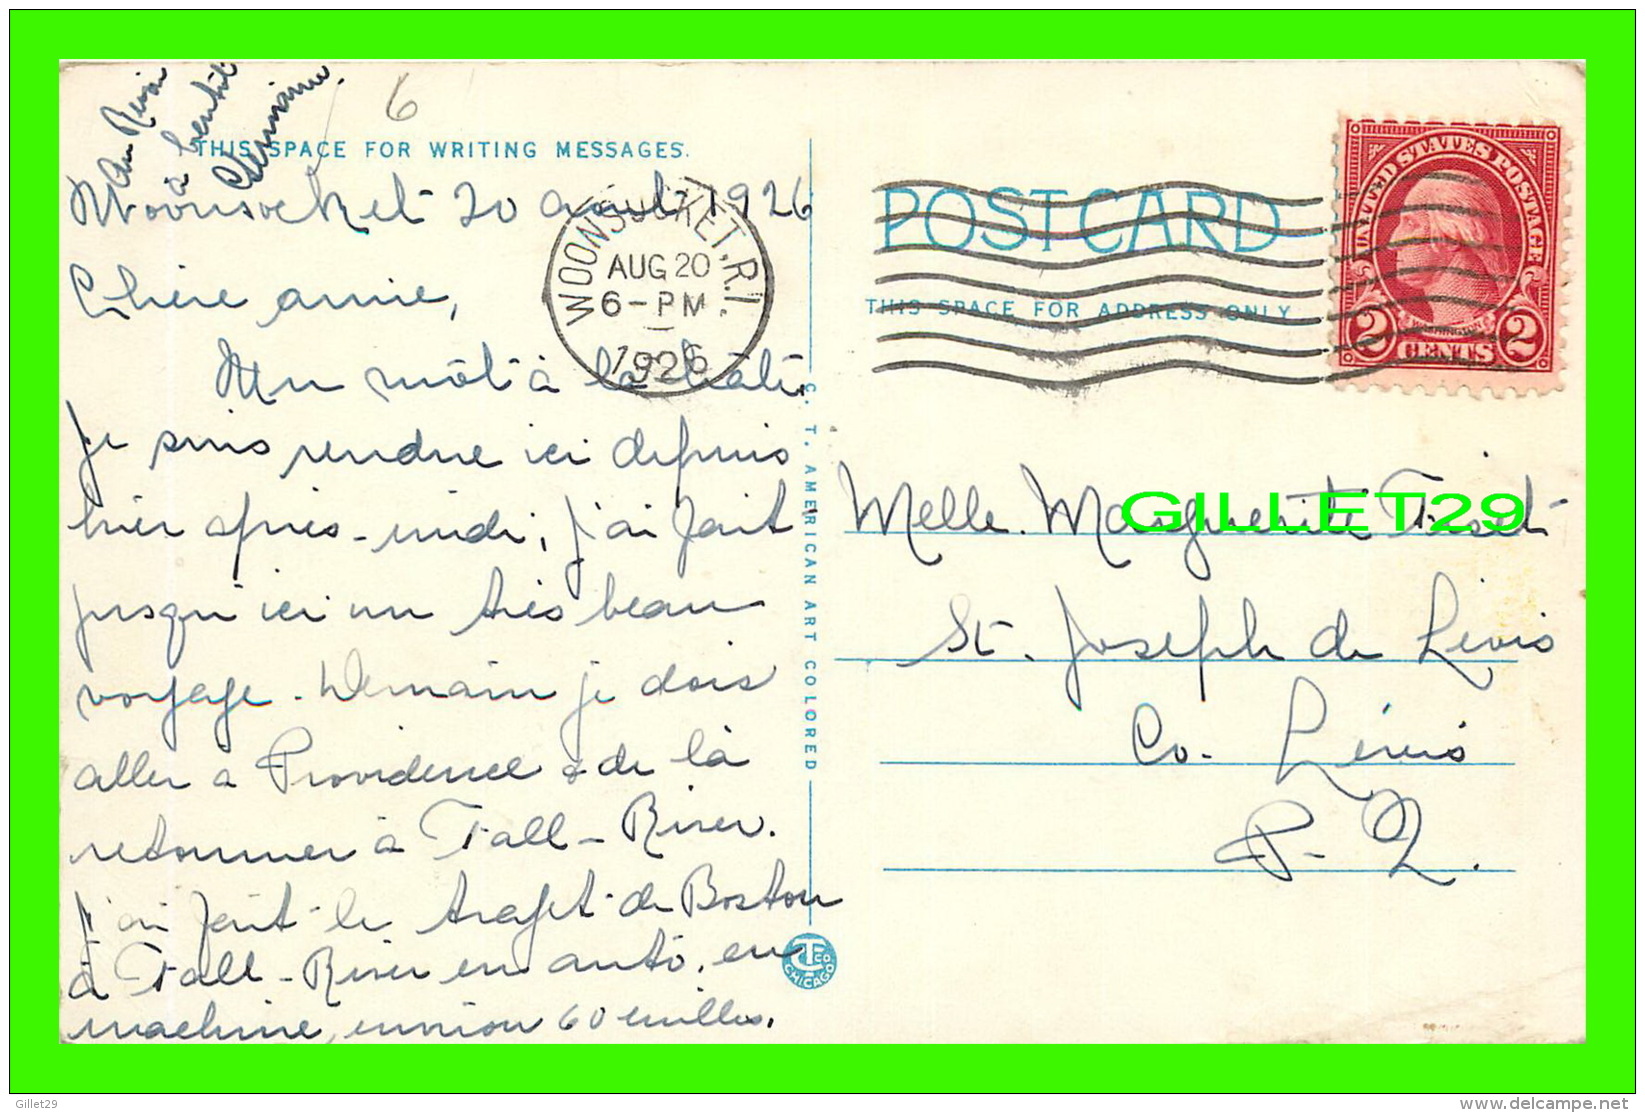 Au Revoir
à bientôt
Germaine.
6
THIS SPACE FOR WRITING MESSAGES.
Woonsocket 20 août 1926
Chère amie,
Un mot à la hâte,
je suis rendue ici depuis
hier après-midi, j'ai fait
jusqu'ici un très beau
voyage. Demain je dois
aller a Providence & de là
retourner à Fall-River.
j'ai fait le trajet de Boston
à Fall-River en auto, en
machine, environ 60 milles.
WOONSOCKET, R.I.
AUG 20
6-PM
1926
C. T. AMERICAN ART COLORED
CT CO. CHICAGO
POST CARD
THIS SPACE FOR ADDRESS ONLY
UNITED STATES POSTAGE
WASHINGTON
2 CENTS 2
GILLET29
Melle. Marguerite Fiset
St. Joseph de Lévis
Co. Lévis
P-Q.
Gillet29
www.delcampe.net